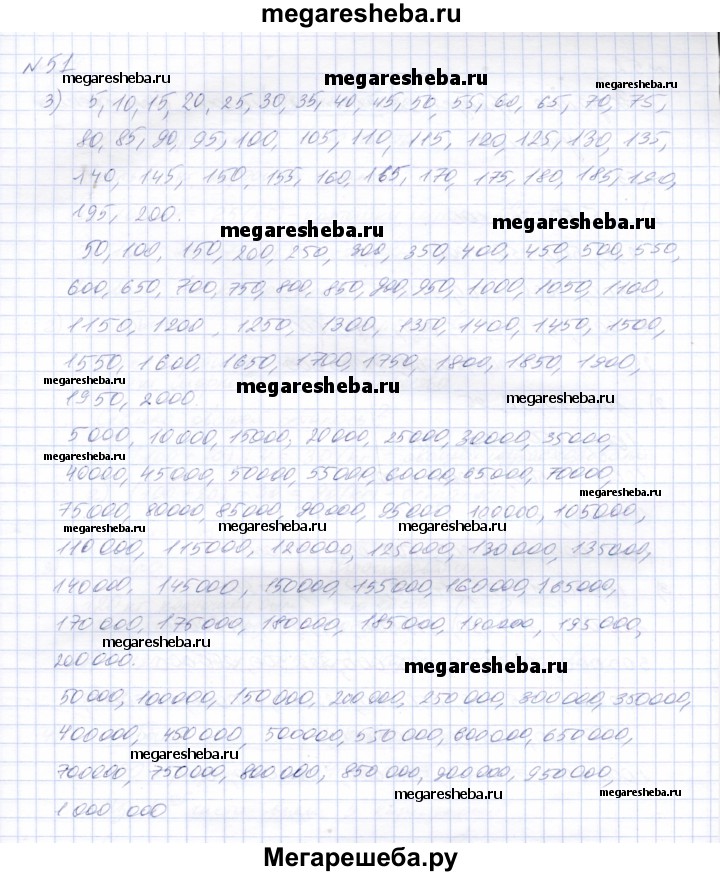 megaresheba.ru
N 51
megaresheba.ru megaresheba.ru megaresheba.ru
3) 5, 10, 15, 20, 25, 30, 35, 40, 45, 50, 55, 60, 65, 70, 75,
80, 85, 90, 95, 100, 105, 110, 115, 120, 125, 130, 135,
140, 145, 150, 155, 160, 165, 170, 175, 180, 185, 190,
195, 200.
megaresheba.ru megaresheba.ru
50, 100, 150, 200, 250, 300, 350, 400, 450, 500, 550,
600, 650, 700, 750, 800, 850, 900, 950, 1000, 1050, 1100,
1150, 1200, 1250, 1300, 1350, 1400, 1450, 1500,
1550, 1600, 1650, 1700, 1750, 1800, 1850, 1900,
megaresheba.ru megaresheba.ru megaresheba.ru
1950, 2000.
5000, 10000, 15000, 20000, 25000, 30000, 35000,
megaresheba.ru
40000, 45000, 50000, 55000, 60000, 65000, 70000,
megaresheba.ru
75000, 80000, 85000, 90000, 95000 100000, 105000,
megaresheba.ru megaresheba.ru megaresheba.ru
110000, 115000, 120000, 125000, 130000, 135000,
140000, 145000, 150000, 155000, 160000, 165000,
170000, 175000, 180000, 185000, 190200, 195000,
megaresheba.ru
200000.
megaresheba.ru
50000, 100000, 150000, 200000, 250000, 300000, 350000,
400000, 450000, 500000, 550000, 600000, 650000,
megaresheba.ru
700000, 750000, 800000, 850000, 900000, 950000,
megaresheba.ru megaresheba.ru
1000 000
Мегарешеба.ру